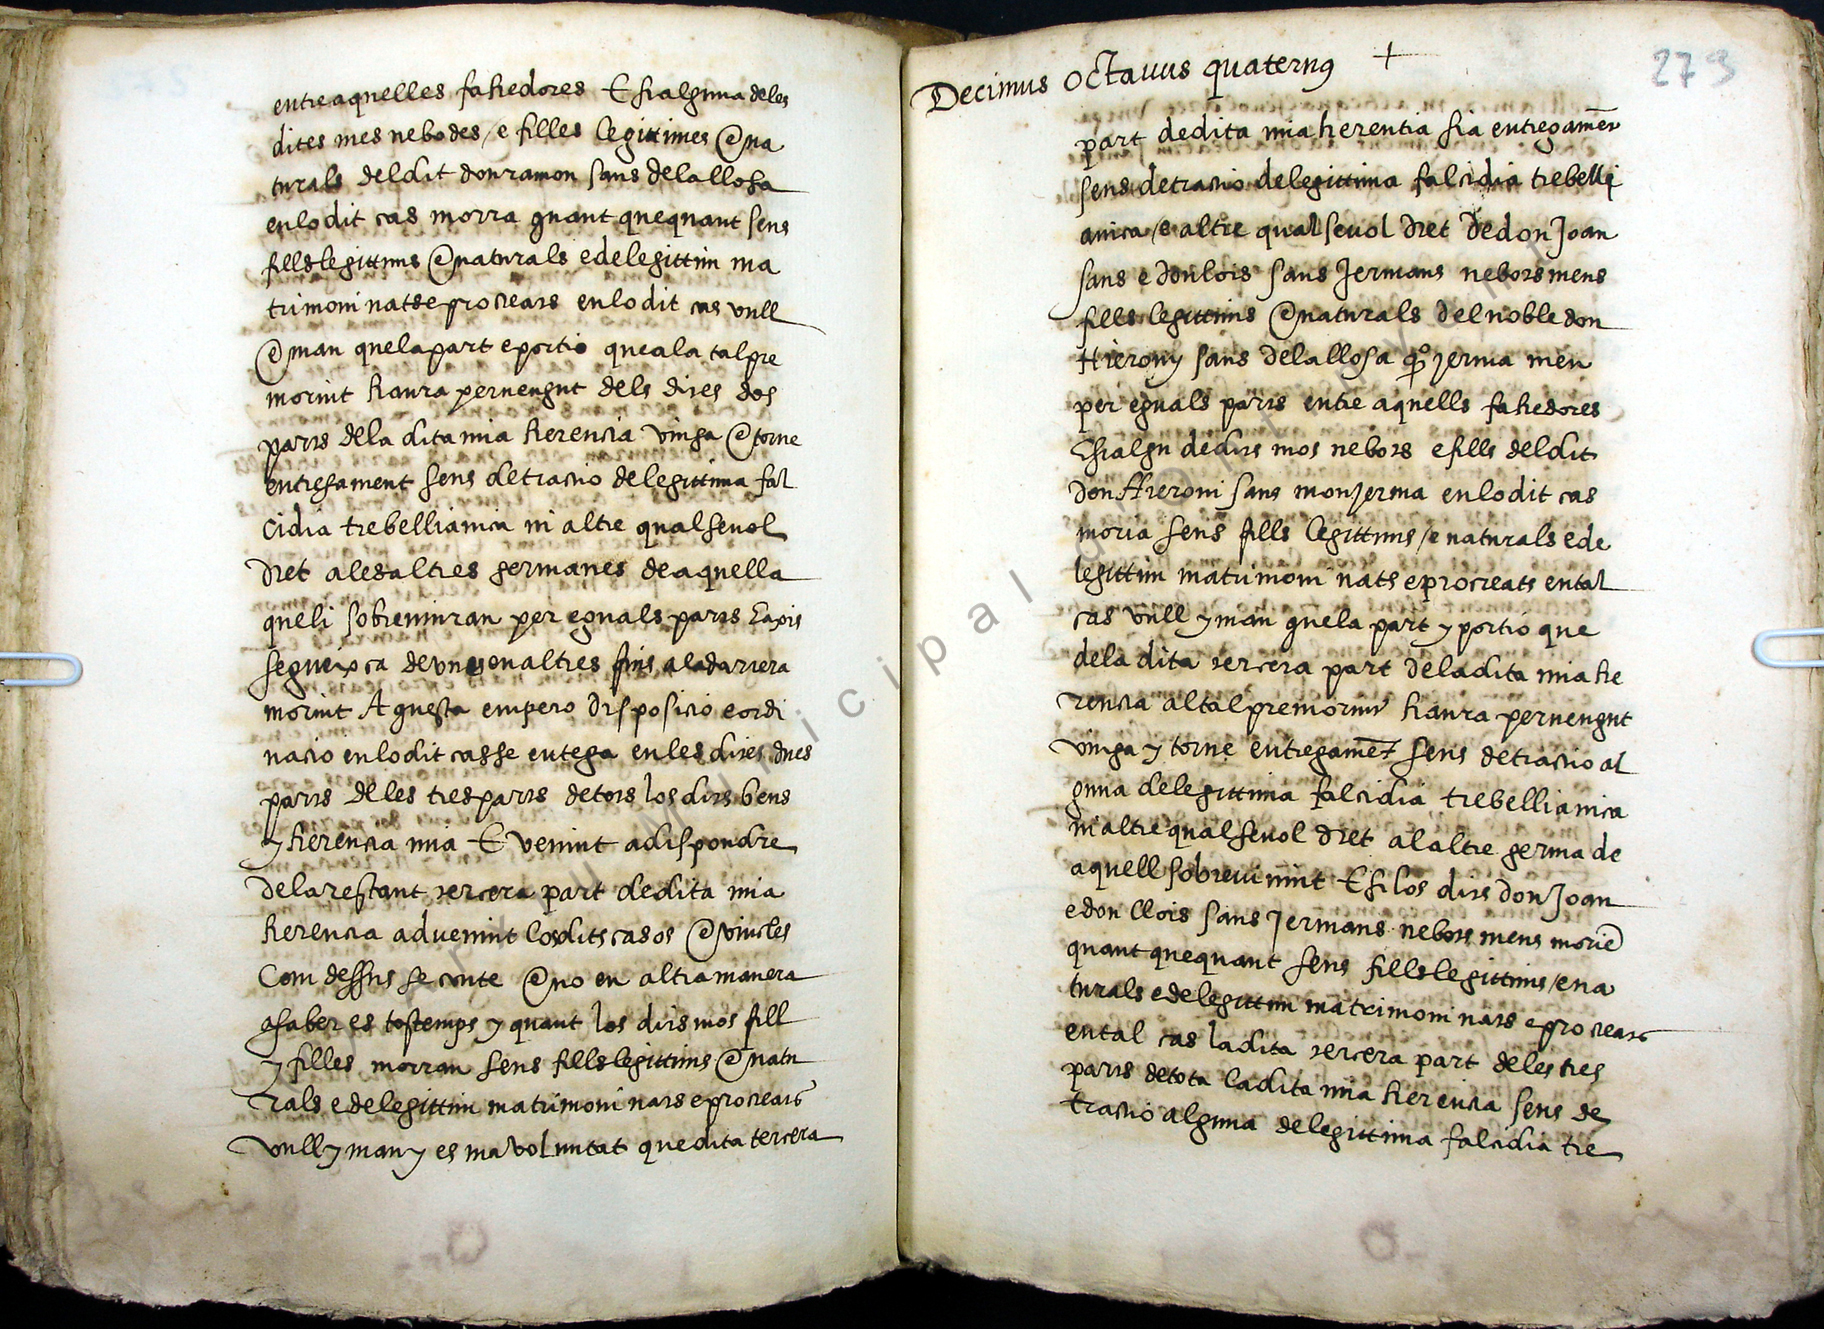 entre aquelles fahedores E si alguna deles
dites mes nebodes / e filles legittimes e na
turals del dit don ramon sans dela llosa
en lo dit cas morra quant que quant sens
fills legittims e naturals e de legittim ma
trimoni nats e procreats en lo dit cas vull
e man que la part e portio que a la tal pre
morint haura pervengut dels dites dos
parts dela dita mia herencia vinga e torne
entregament sens detractio de legittima fal
cidia trebellianica ni altre qualsevol
dret a les altres germanes de aquella
que li sobreviuran per eguals parts E axis
segueixca de unes en altres fins a la darrera
morint Aquesta empero disposicio e ordi
nacio en lo dit cas se entega en les dites dues
parts de les tres parts de tots los dits bens
y herencia mia E venint a dispondre
de la restant tercera part de dita mia
herencia advenint los dits casos e vincles
Com dessus se conte e no en altra manera
a saber es tostemps y quant los dits mos fill
y filles morran sens fills legittims e natu
rals e de legittim matrimoni nats e procreats
vull y man y es ma voluntat que dita tercera
Decimus octauus quaternus +
273
part de dita mia herentia sia entregament
sens detractio de legittima falcidia trebelli
anica / e altre qualsevol dret de don Joan
sans e don lois sans Jermans nebots meus
fills legittims e naturals del noble don
Hierony sans dela llosa qº jerma meu
per eguals parts entre aquells fahedores
E si algu de dits mos nebots e fills del dit
don Hieroni sans mon jerma en lo dit cas
moria sens fills legittims / e naturals e de
legittim matrimoni nats e procreats en tal
cas vull y man que la part y portio que
dela dita tercera part dela dita mia he
rencia al tal premorint haura pervengut
vinga y torne entregamet sens detractio al
guna de legittima falcidia trebellianica
ni altre qualsevol dret al altre germa de
aquell sobrevivint E si los dits don Joan
e don llois sans Jermans nebots meus morie
quant que quant sens fills legittims / e na
turals e de legittim matrimoni nats e procreats
en tal cas la dita tercera part de les tres
parts de tota la dita mia herencia sens de
tractio alguna de legittima falcidia tre